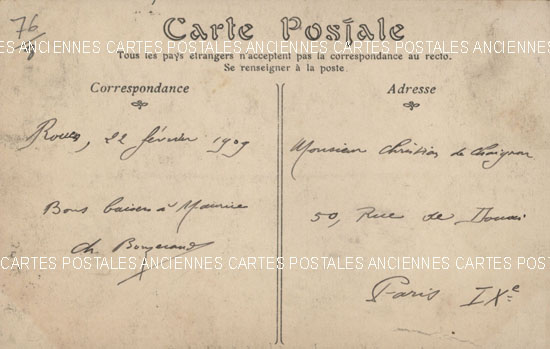 76
Carte Postale
CARTES POSTALES ANCIENNES CARTES POSTALES ANCIENNES CARTES POSTALES ANCIENNES
Tous les pays étrangers n'acceptent pas la correspondance au recto.
Se renseigner à la poste.
Correspondance
Rouen, 22 février 1909
Bons baisers à Maurice
Ch.
Adresse
Monsieur Christian de
50, Rue de Douai
Paris IXe
CARTES POSTALES ANCIENNES CARTES POSTALES ANCIENNES CARTES POSTALES ANCIENNES